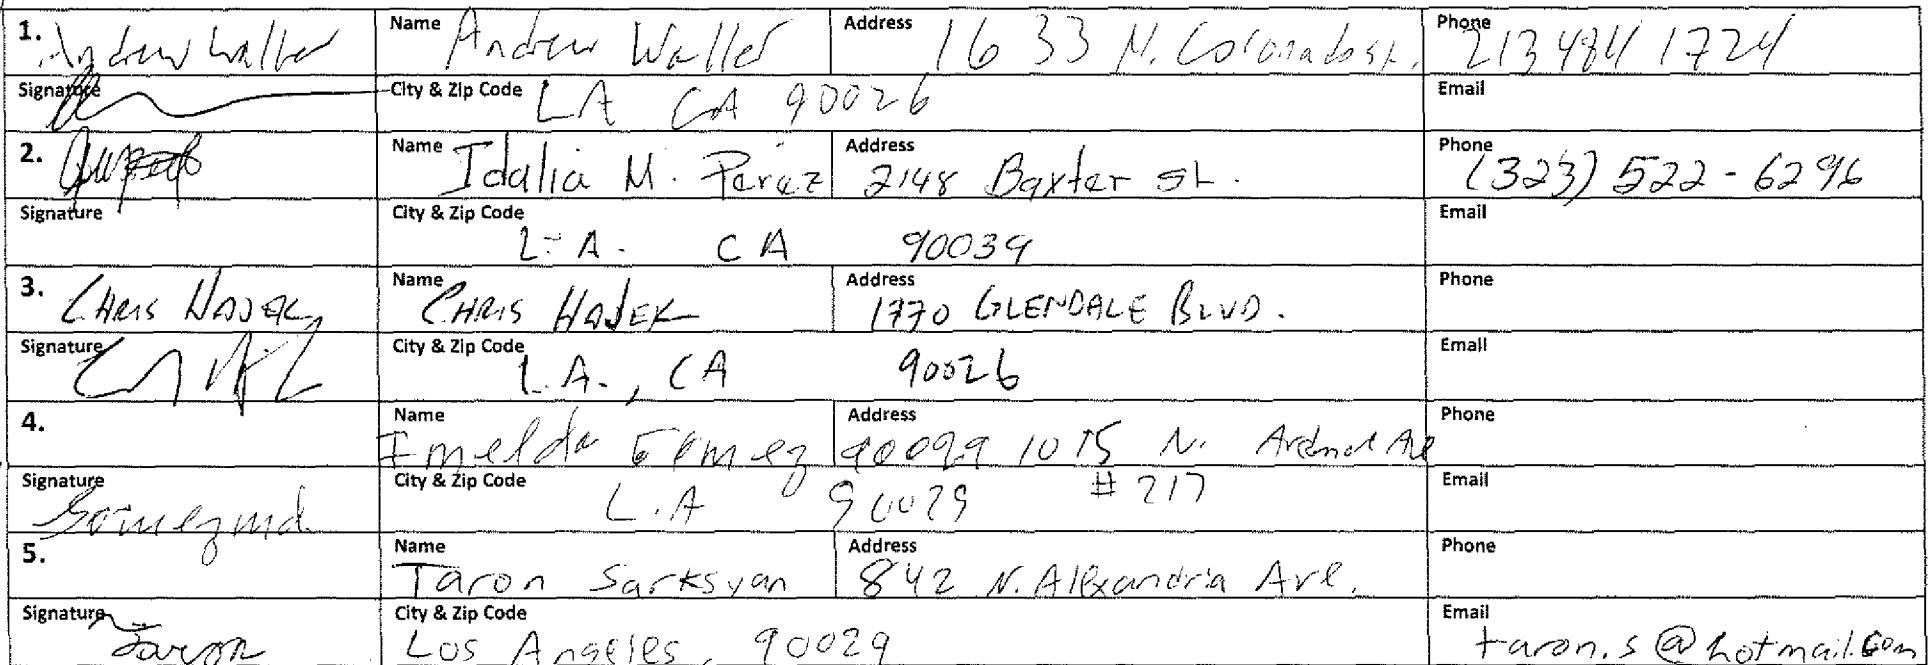 1. Andrew Waller Name Andrew Waller Address 1633 N. Coronado st. Phone 213 484 1724
Signature City & Zip Code LA CA 90026 Email
2. Name Idalia M. Perez Address 2148 Baxter st. Phone (323) 522-6296
Signature City & Zip Code L.A. CA 90039 Email
3. CHRIS HAJEK Name CHRIS HAJEK Address 1770 GLENDALE BLVD. Phone
Signature City & Zip Code L.A., CA 90026 Email
4. Name Imelda Gomez Address 90029 1015 N. Ave Phone
Signature City & Zip Code L.A 90029 #217 Email
5. Name Taron Sarksyan Address 842 N. Alexandria Ave. Phone
Signature Taron City & Zip Code Los Angeles, 90029 Email taron.s@hotmail.com